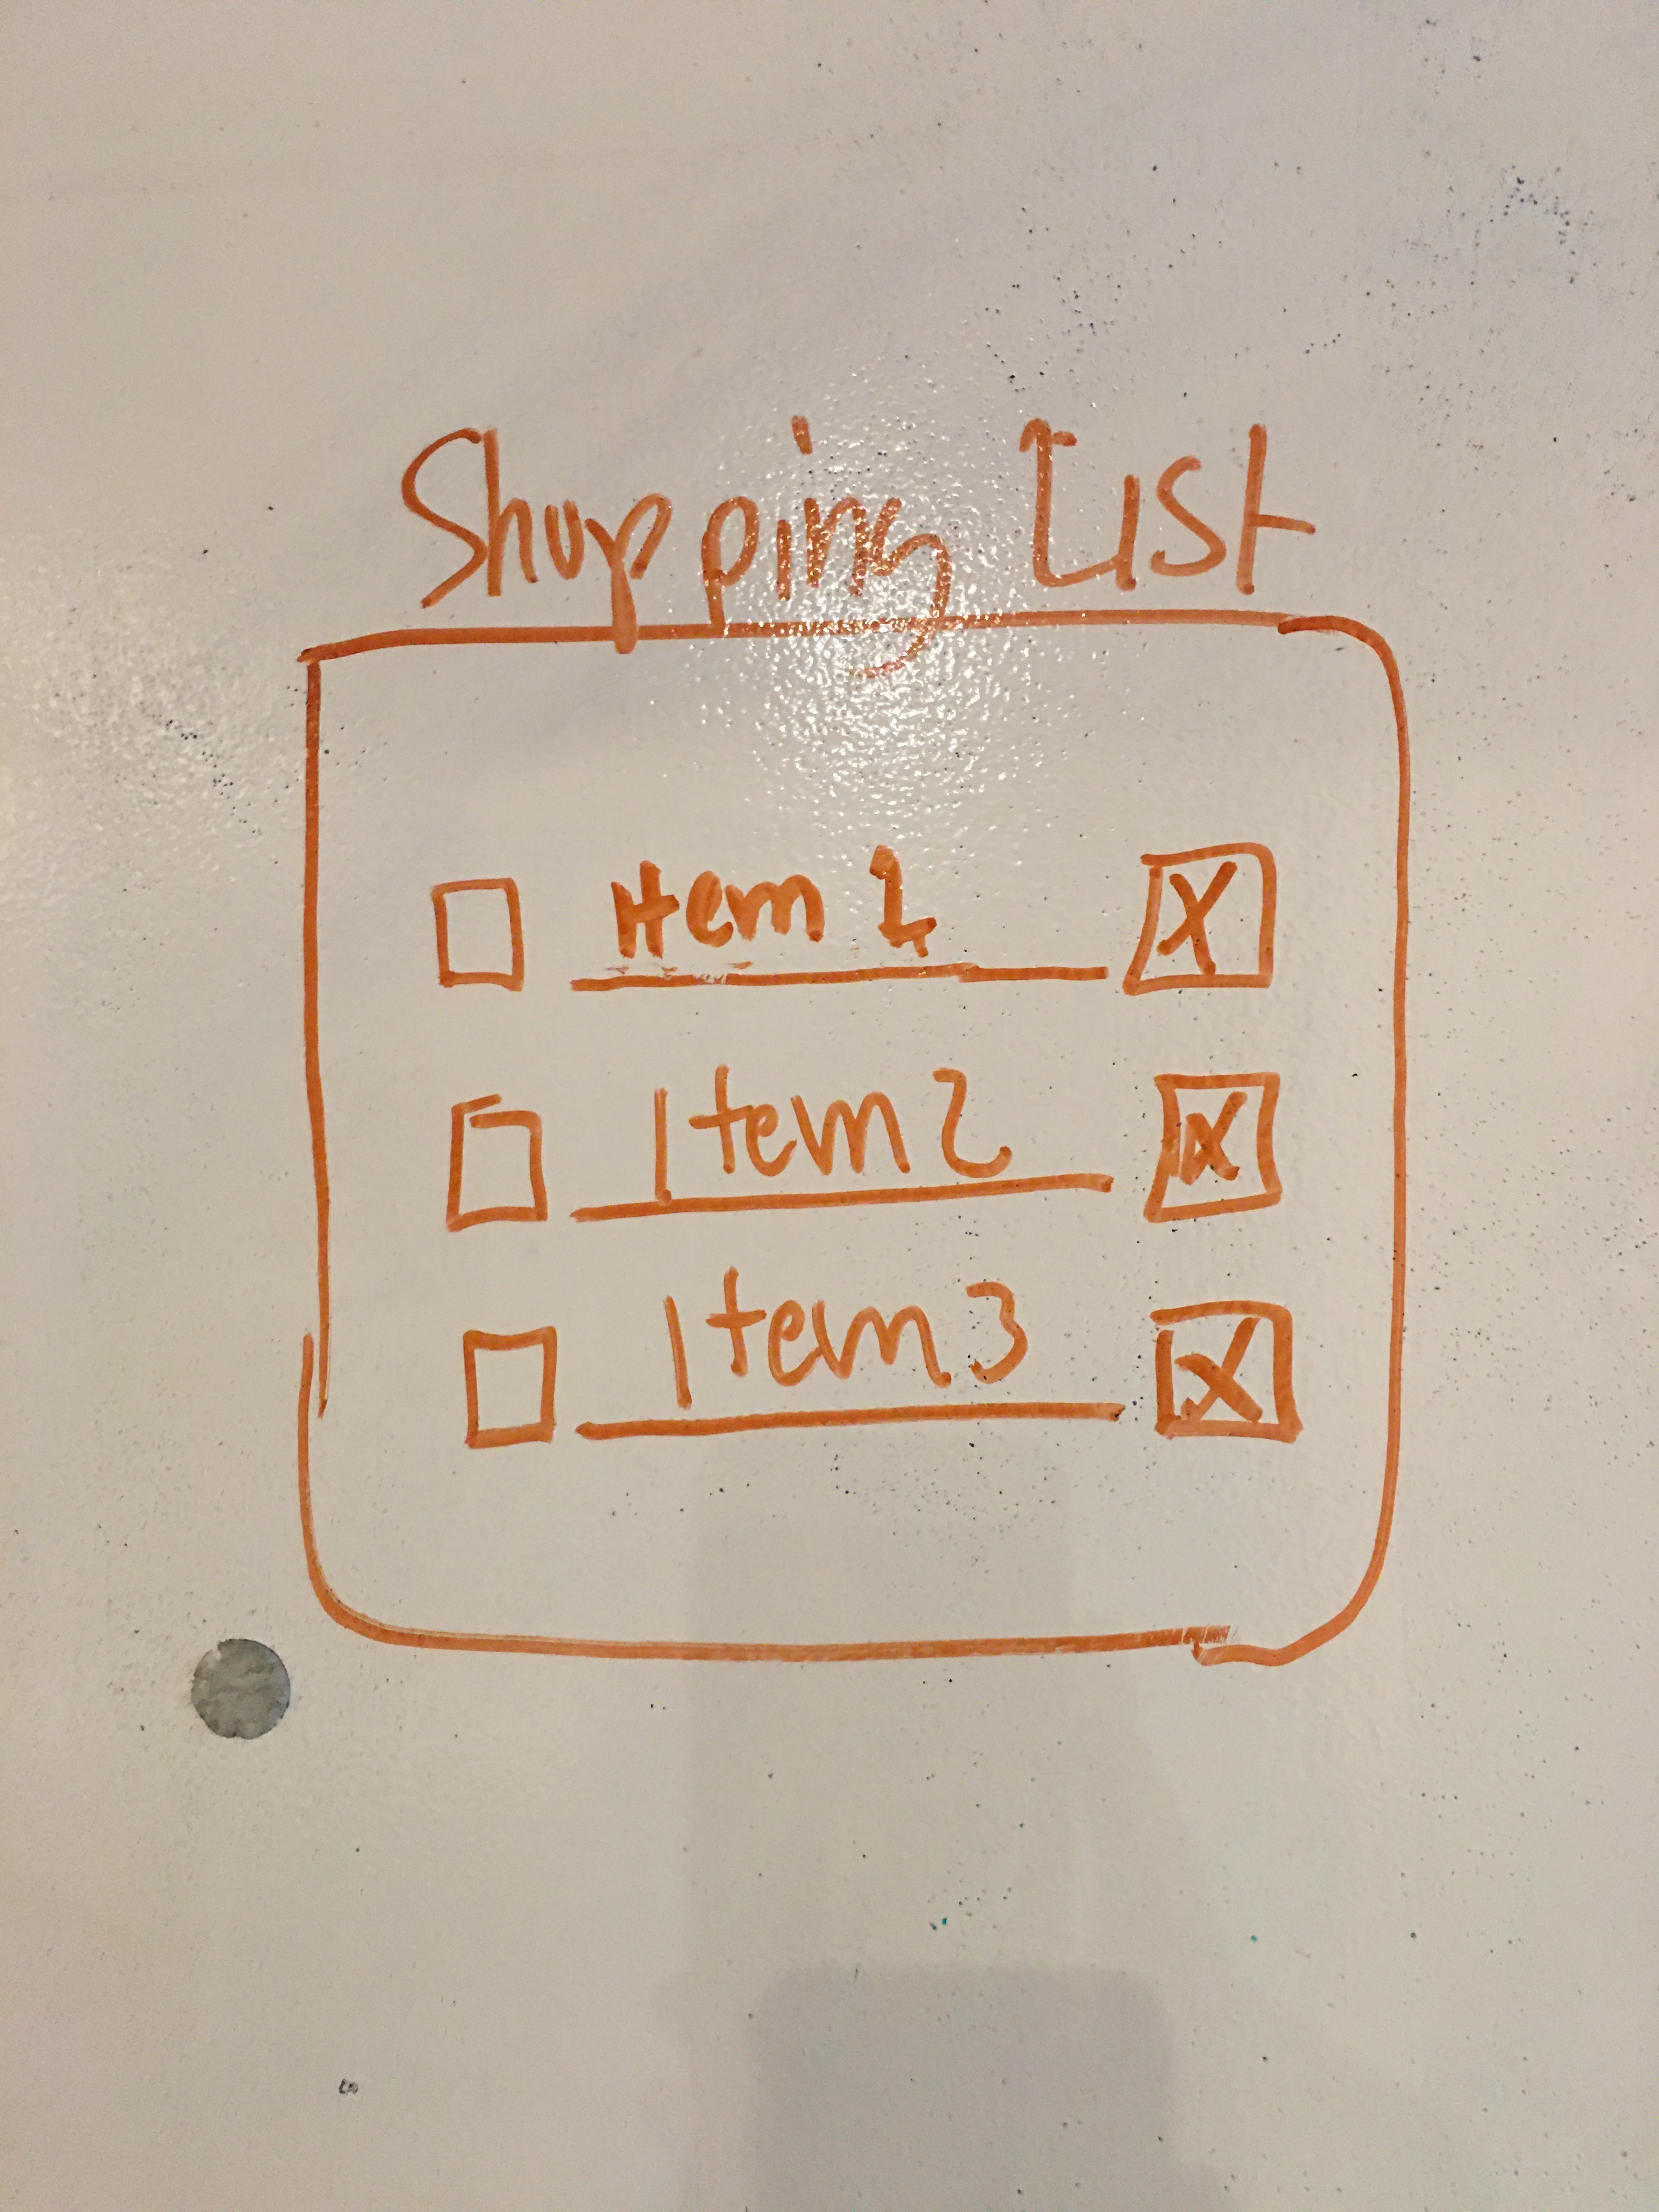 Shopping List
Item 1
X
Item 2
X
Item 3
X